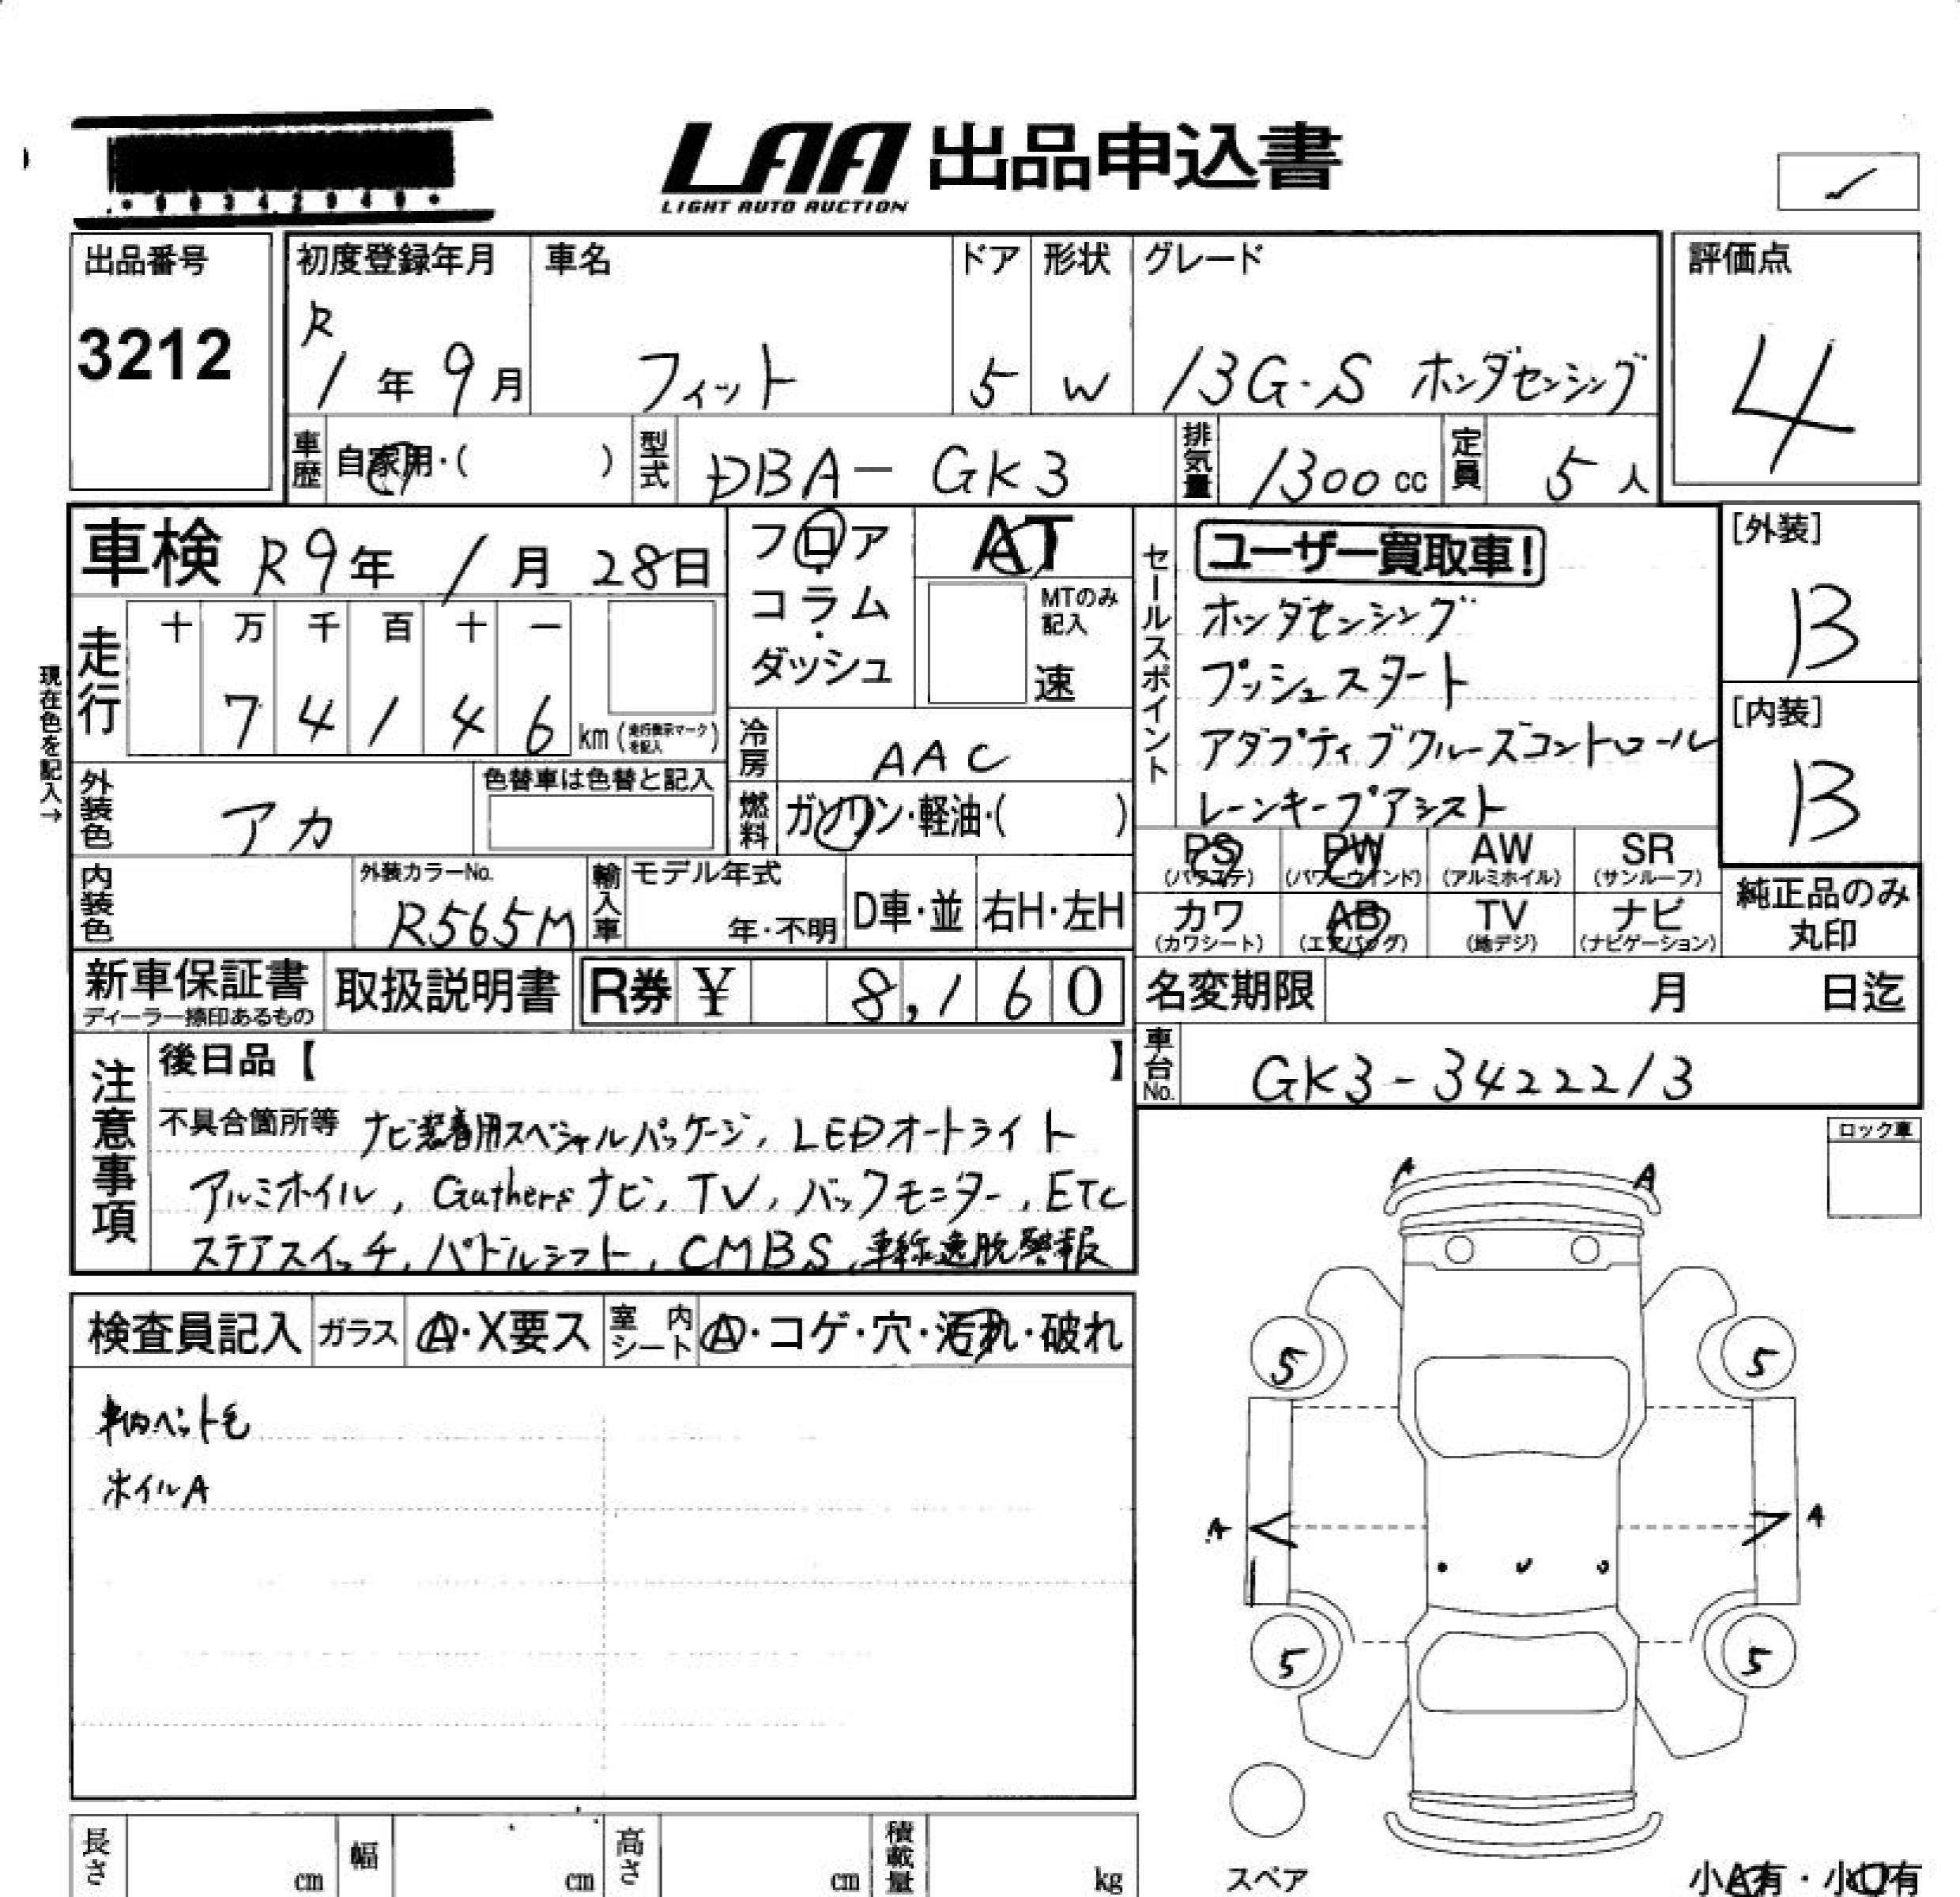 LAA 出品申込書
LIGHT AUTO AUCTION
出品番号
3212
初度登録年月
R
1年 9月
車名
フィット
ドア
5
形状
W
グレード
13G・S ホンダセンシング
評価点
4
車歴
自家用・( )
型式
DBA-GK3
排気量
1300cc
定員
5人
車検 R9年 1月 28日
フロア・コラム・ダッシュ
AT
MTのみ記入
速
走行
十 万 千 百 十 一
7 4 1 4 6 km
(走行表示マークを記入)
現在色を記入→
冷房
AAC
燃料
ガソリン・軽油・( )
外装色
アカ
色替車は色替と記入
内装色
外装カラーNo.
R565M
輸入車
モデル年式
年・不明
D車・並
右H・左H
セールスポイント
ユーザー買取車!
ホンダセンシング
プッシュスタート
アダプティブクルーズコントロール
レーンキープアシスト
[外装]
B
[内装]
B
PS (パワステ)
PW (パワーウインド)
AW (アルミホイル)
SR (サンルーフ)
カワ (カワシート)
AB (エアバッグ)
TV (地デジ)
ナビ (ナビゲーション)
純正品のみ丸印
新車保証書
ディーラー捺印あるもの
取扱説明書
R券 ¥ 8,160
名変期限 月 日迄
車台No.
GK3-3422213
注意事項
後日品【 】
不具合箇所等 ナビ装着用スペシャルパッケージ, LEDオートライト
アルミホイル, Gathersナビ, TV, バックモニター, ETC
ステアスイッチ, パドルシフト, CMBS, 車線逸脱警報
ロック車
検査員記入
ガラス
A・X要ス
室内シート
A・コゲ・穴・汚れ・破れ
車内ペット毛
ホイルA
A A
5 5
A A
5 5
スペア
小A有・小U有
長さ cm
幅 cm
高さ cm
積載量 kg